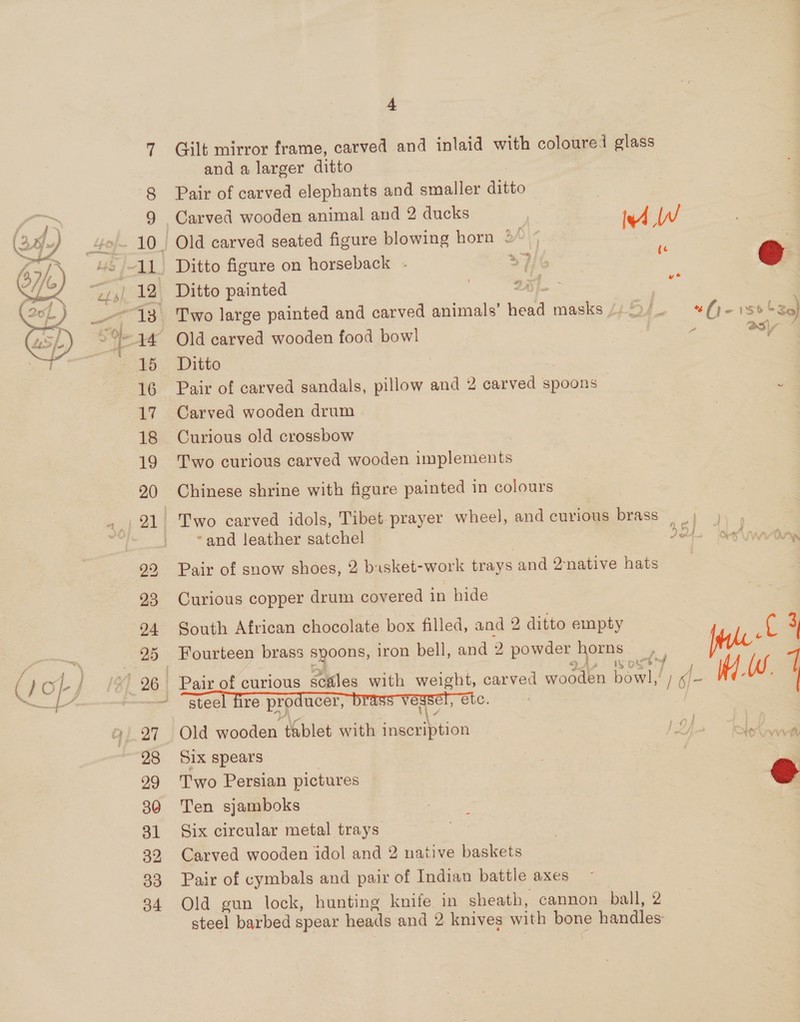 4
7 Gilt mirror frame, carved and inlaid with coloured glass
and a larger ditto
8 Pair of carved elephants and smaller ditto
9 Carved wooden animal and 2 ducks
10 Old carved seated figure blowing horn
11 Ditto figure on horseback -
12 Ditto painted
13 Two large painted and carved animals' head masks
14 Old carved wooden food bowl
15 Ditto
16 Pair of carved sandals, pillow and 2 carved spoons
17 Carved wooden drum
18 Curious old crossbow
19 Two curious carved wooden implements
20 Chinese shrine with figure painted in colours
21 Two carved idols, Tibet prayer wheel, and curious brass
and leather satchel
22 Pair of snow shoes, 2 basket-work trays and 2 native hats
23 Curious copper drum covered in hide
24 South African chocolate box filled, and 2 ditto empty
25 Fourteen brass spoons, iron bell, and 2 powder horns
26 Pair of curious scales with weight, carved wooden bowl,
steel fire producer, brass vessel, etc.
27 Old wooden tablet with inscription
28 Six spears
29 Two Persian pictures
30 Ten sjamboks
31 Six circular metal trays
32 Carved wooden idol and 2 native baskets
33 Pair of cymbals and pair of Indian battle axes
34 Old gun lock, hunting knife in sheath, cannon ball, 2
steel barbed spear heads and 2 knives with bone handles